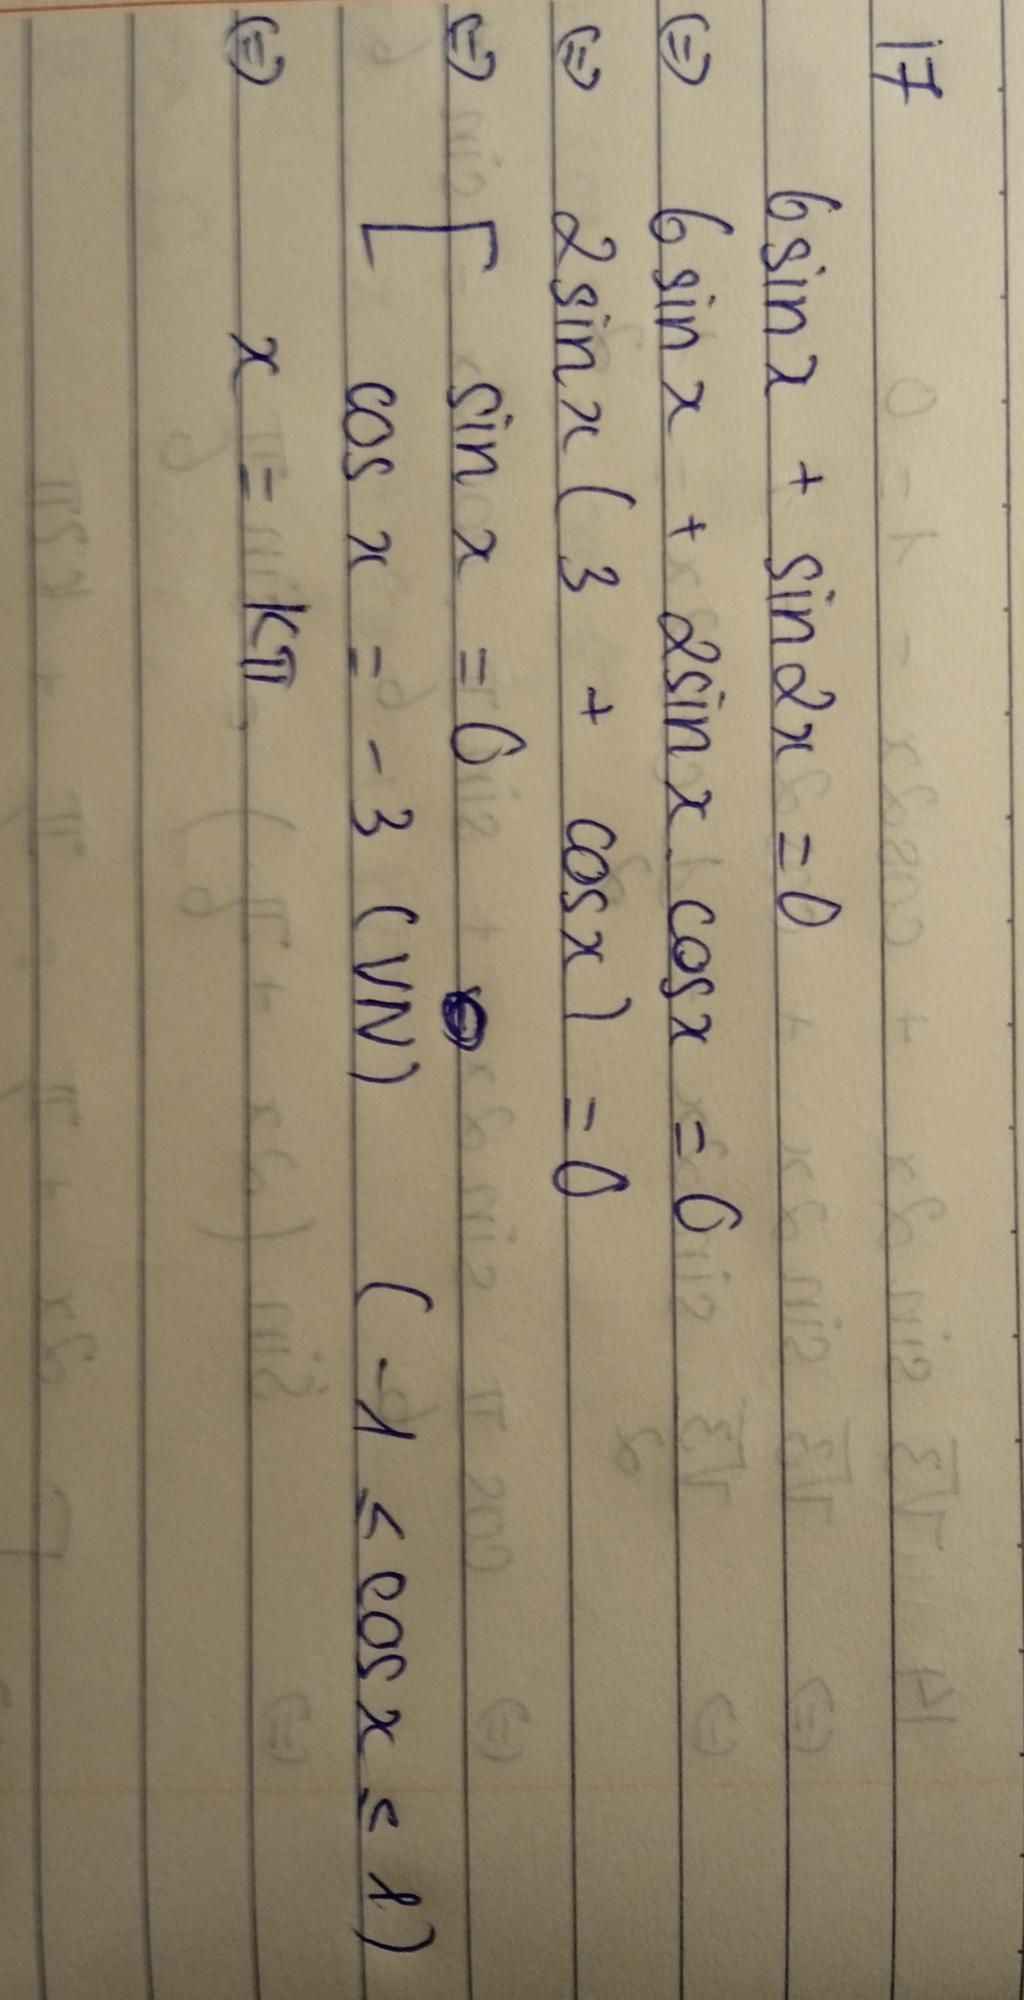 17
6sinx + sin2x = 0
(=) 6sinx + 2sinx.cosx = 0
(=) 2sinx(3 + cosx) = 0
(=) [ sinx = 0
cosx = -3 (VN) (-1 ≤ cosx ≤ 1)
(=) x = kπ